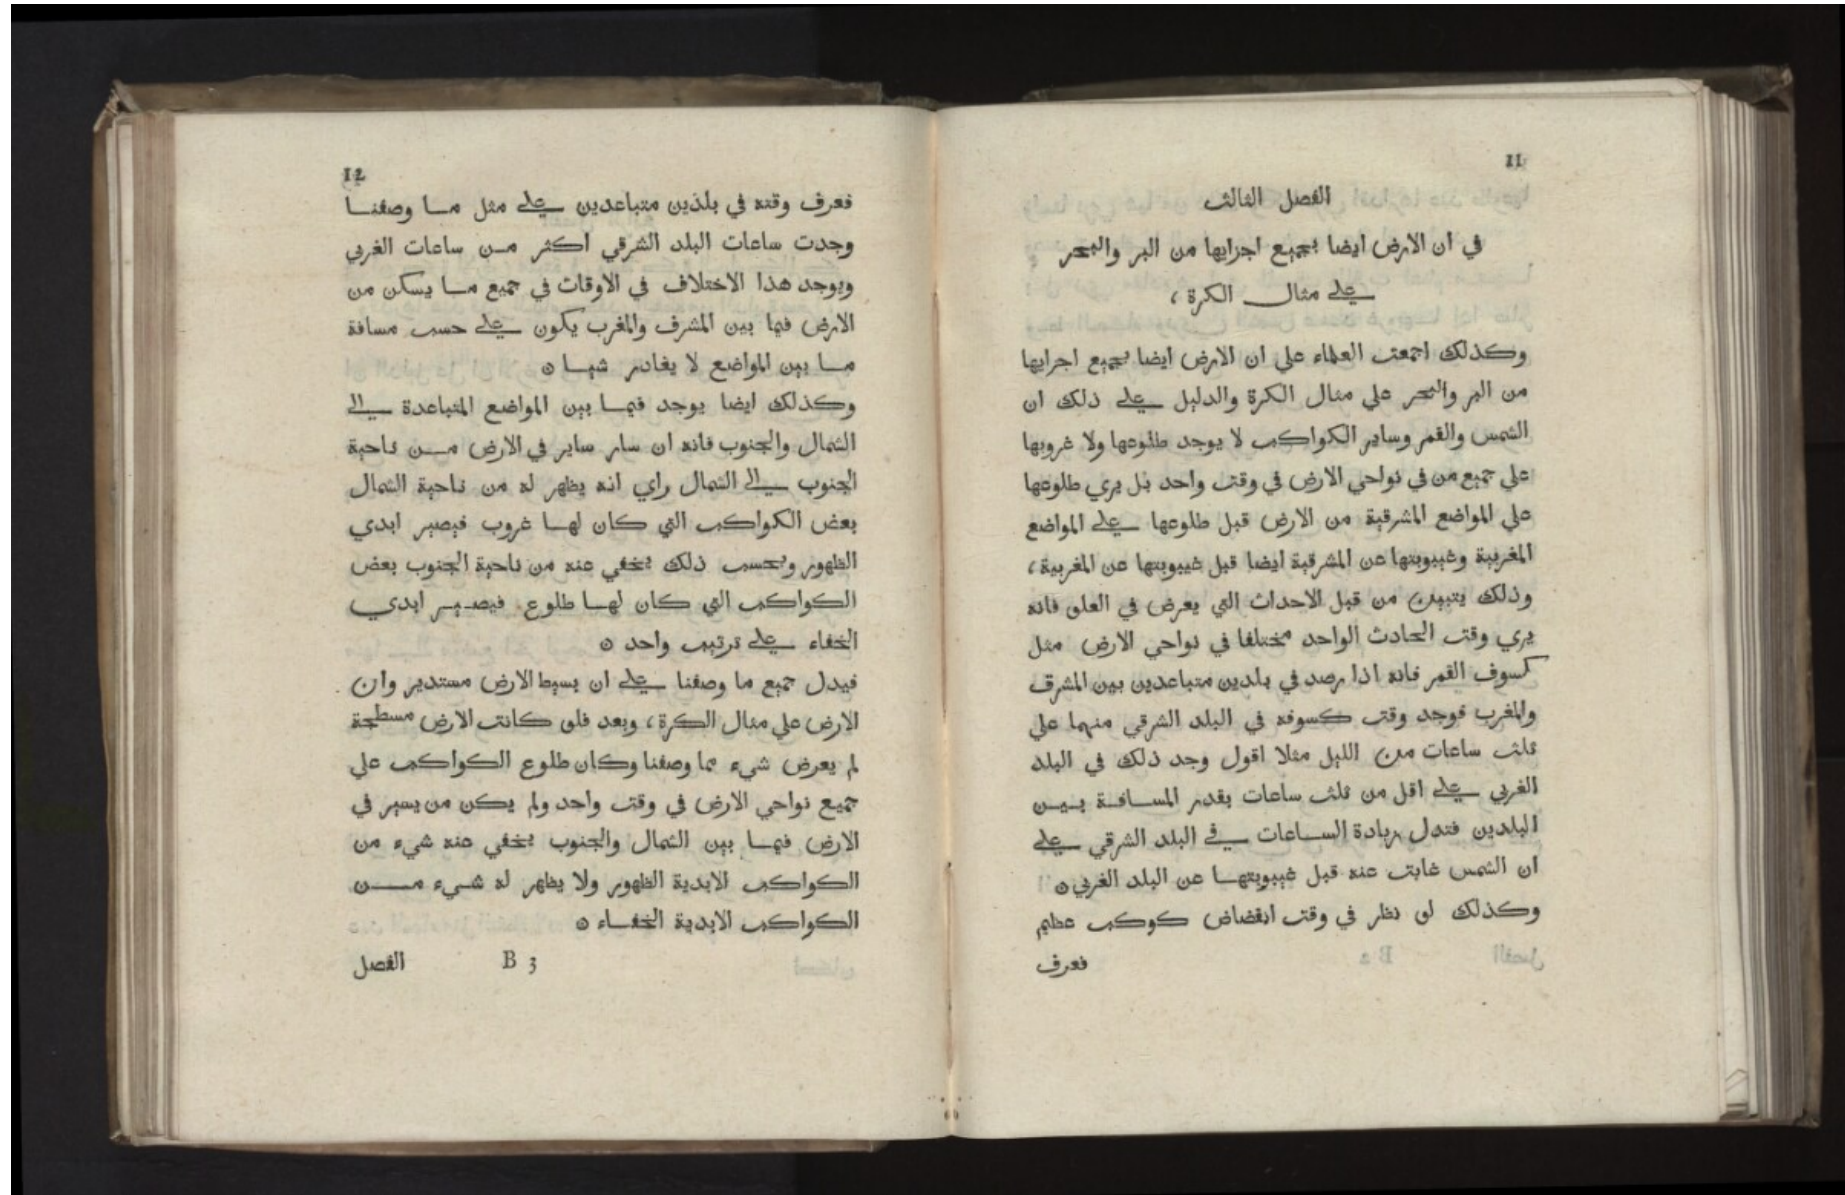 11
الفصل الثالث
في ان الارض ايضا بجميع اجزايها من البر والبحر
علي مثال الكرة ،
وكذلك اجمعت العلماء علي ان الارض ايضا بجميع اجزايها
من البر والبحر علي مثال الكرة والدليل علي ذلك ان
الشمس والقمر وساير الكواكب لا يوجد طلوعها ولا غروبها
علي جميع من في نواحي الارض في وقت واحد بل يري طلوعها
علي المواضع المشرقية من الارض قبل طلوعها علي المواضع
المغربية وغيبوبتها عن المشرقية ايضا قبل غيبوبتها عن المغربية ،
وذلك يتبين من قبل الاحداث التي يعرض في العلو فانه
يري وقت الحادث الواحد مختلفا في نواحي الارض مثل
كسوف القمر فانه اذا رصد في بلدين متباعدين بين المشرق
والمغرب فوجد وقت كسوفه في البلد الشرقي منهما علي
ثلث ساعات من الليل مثلا اقول وجد ذلك في البلد
الغربي علي اقل من ثلث ساعات بقدر المسافة بين
البلدين فتدل زيادة الساعات في البلد الشرقي علي
ان الشمس غابت عنه قبل غيبوبتها عن البلد الغربي ه
وكذلك لو نظر في وقت انقضاض كوكب عظيم
فعرف
12
فعرف وقته في بلدين متباعدين علي مثل ما وصفنا
وجدت ساعات البلد الشرقي اكثر من ساعات الغربي
ويوجد هذا الاختلاف في الاوقات في جميع ما يسكن من
الارض فيما بين المشرق والمغرب يكون علي حسب مسافة
ما بين المواضع لا يغادر شيا ه
وكذلك ايضا يوجد فيما بين المواضع المتباعدة الي
الشمال والجنوب فانه ان سار ساير في الارض من ناحية
الجنوب الي الشمال راي انه يظهر له من ناحية الشمال
بعض الكواكب التي كان لها غروب فيصير ابدي
الظهور وبحسب ذلك يخفي عنه من ناحية الجنوب بعض
الكواكب التي كان لها طلوع فيصير ابدي
الخفاء علي ترتيب واحد ه
فيدل جميع ما وصفنا علي ان بسيط الارض مستدير وان
الارض علي مثال الكرة ، وبعد فلو كانت الارض مسطحة
لم يعرض شيء مما وصفنا وكان طلوع الكواكب علي
جميع نواحي الارض في وقت واحد ولم يكن من يسير في
الارض فيما بين الشمال والجنوب يخفي عنه شيء من
الكواكب الابدية الظهور ولا يظهر له شيء من
الكواكب الابدية الخفاء ه
B 3 الفصل